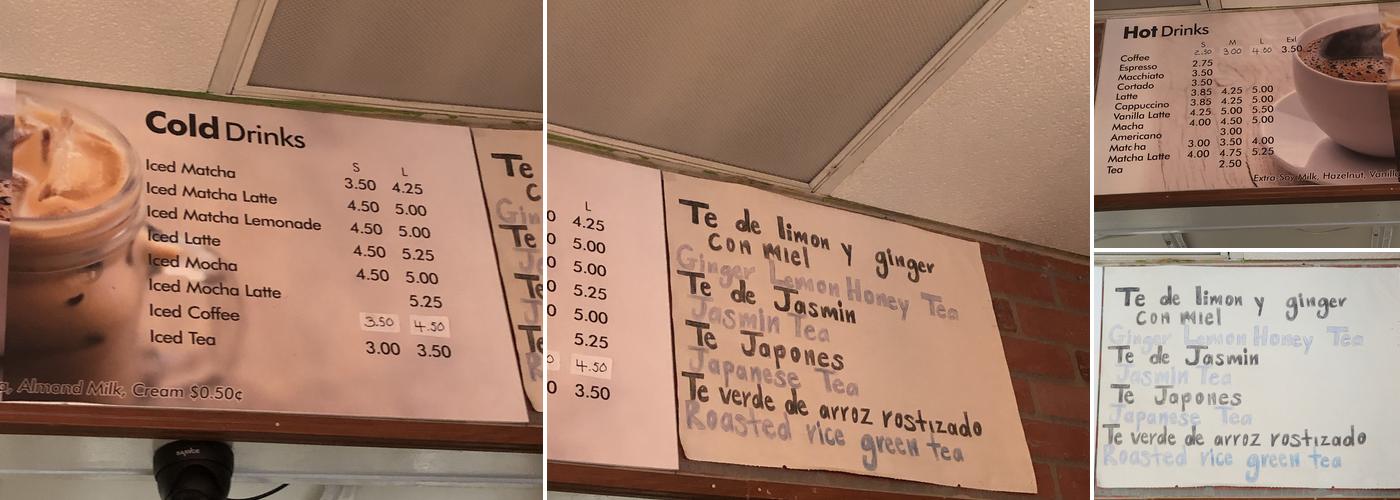 Cold Drinks
S L
Iced Matcha 3.50 4.25
Iced Matcha Latte 4.50 5.00
Iced Matcha Lemonade 4.50 5.00
Iced Latte 4.50 5.25
Iced Mocha 4.50 5.00
Iced Mocha Latte 5.25
Iced Coffee 3.50 4.50
Iced Tea 3.00 3.50
Almond Milk, Cream $0.50¢
Te
C
Gin
Te
Te
L
4.25
5.00
5.00
5.25
5.00
5.25
4.50
3.50
Te de limon y ginger
con miel
Ginger Lemon Honey Tea
Te de Jasmin
Jasmin Tea
Te Japones
Japanese Tea
Te verde de arroz rostizado
Roasted rice green tea
Hot Drinks
S M L Exl
Coffee 2.50 3.00 4.00 3.50
Espresso 2.75
Macchiato 3.50
Cortado 3.50
Latte 3.85 4.25 5.00
Cappuccino 3.85 4.25 5.00
Vanilla Latte 4.25 5.00 5.50
Macha 4.00 4.50 5.00
Americano 3.00
Matcha 3.00 3.50 4.00
Matcha Latte 4.00 4.75 5.25
Tea 2.50
Extra Soy Milk, Hazelnut, Vanilla
Te de limon y ginger
con miel
Ginger Lemon Honey Tea
Te de Jasmin
Jasmin Tea
Te Japones
Japanese Tea
Te verde de arroz rostizado
Roasted rice green tea